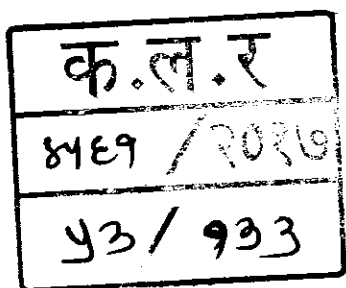 क.ल.र
४५६१ / २०१७
५३ / १३३